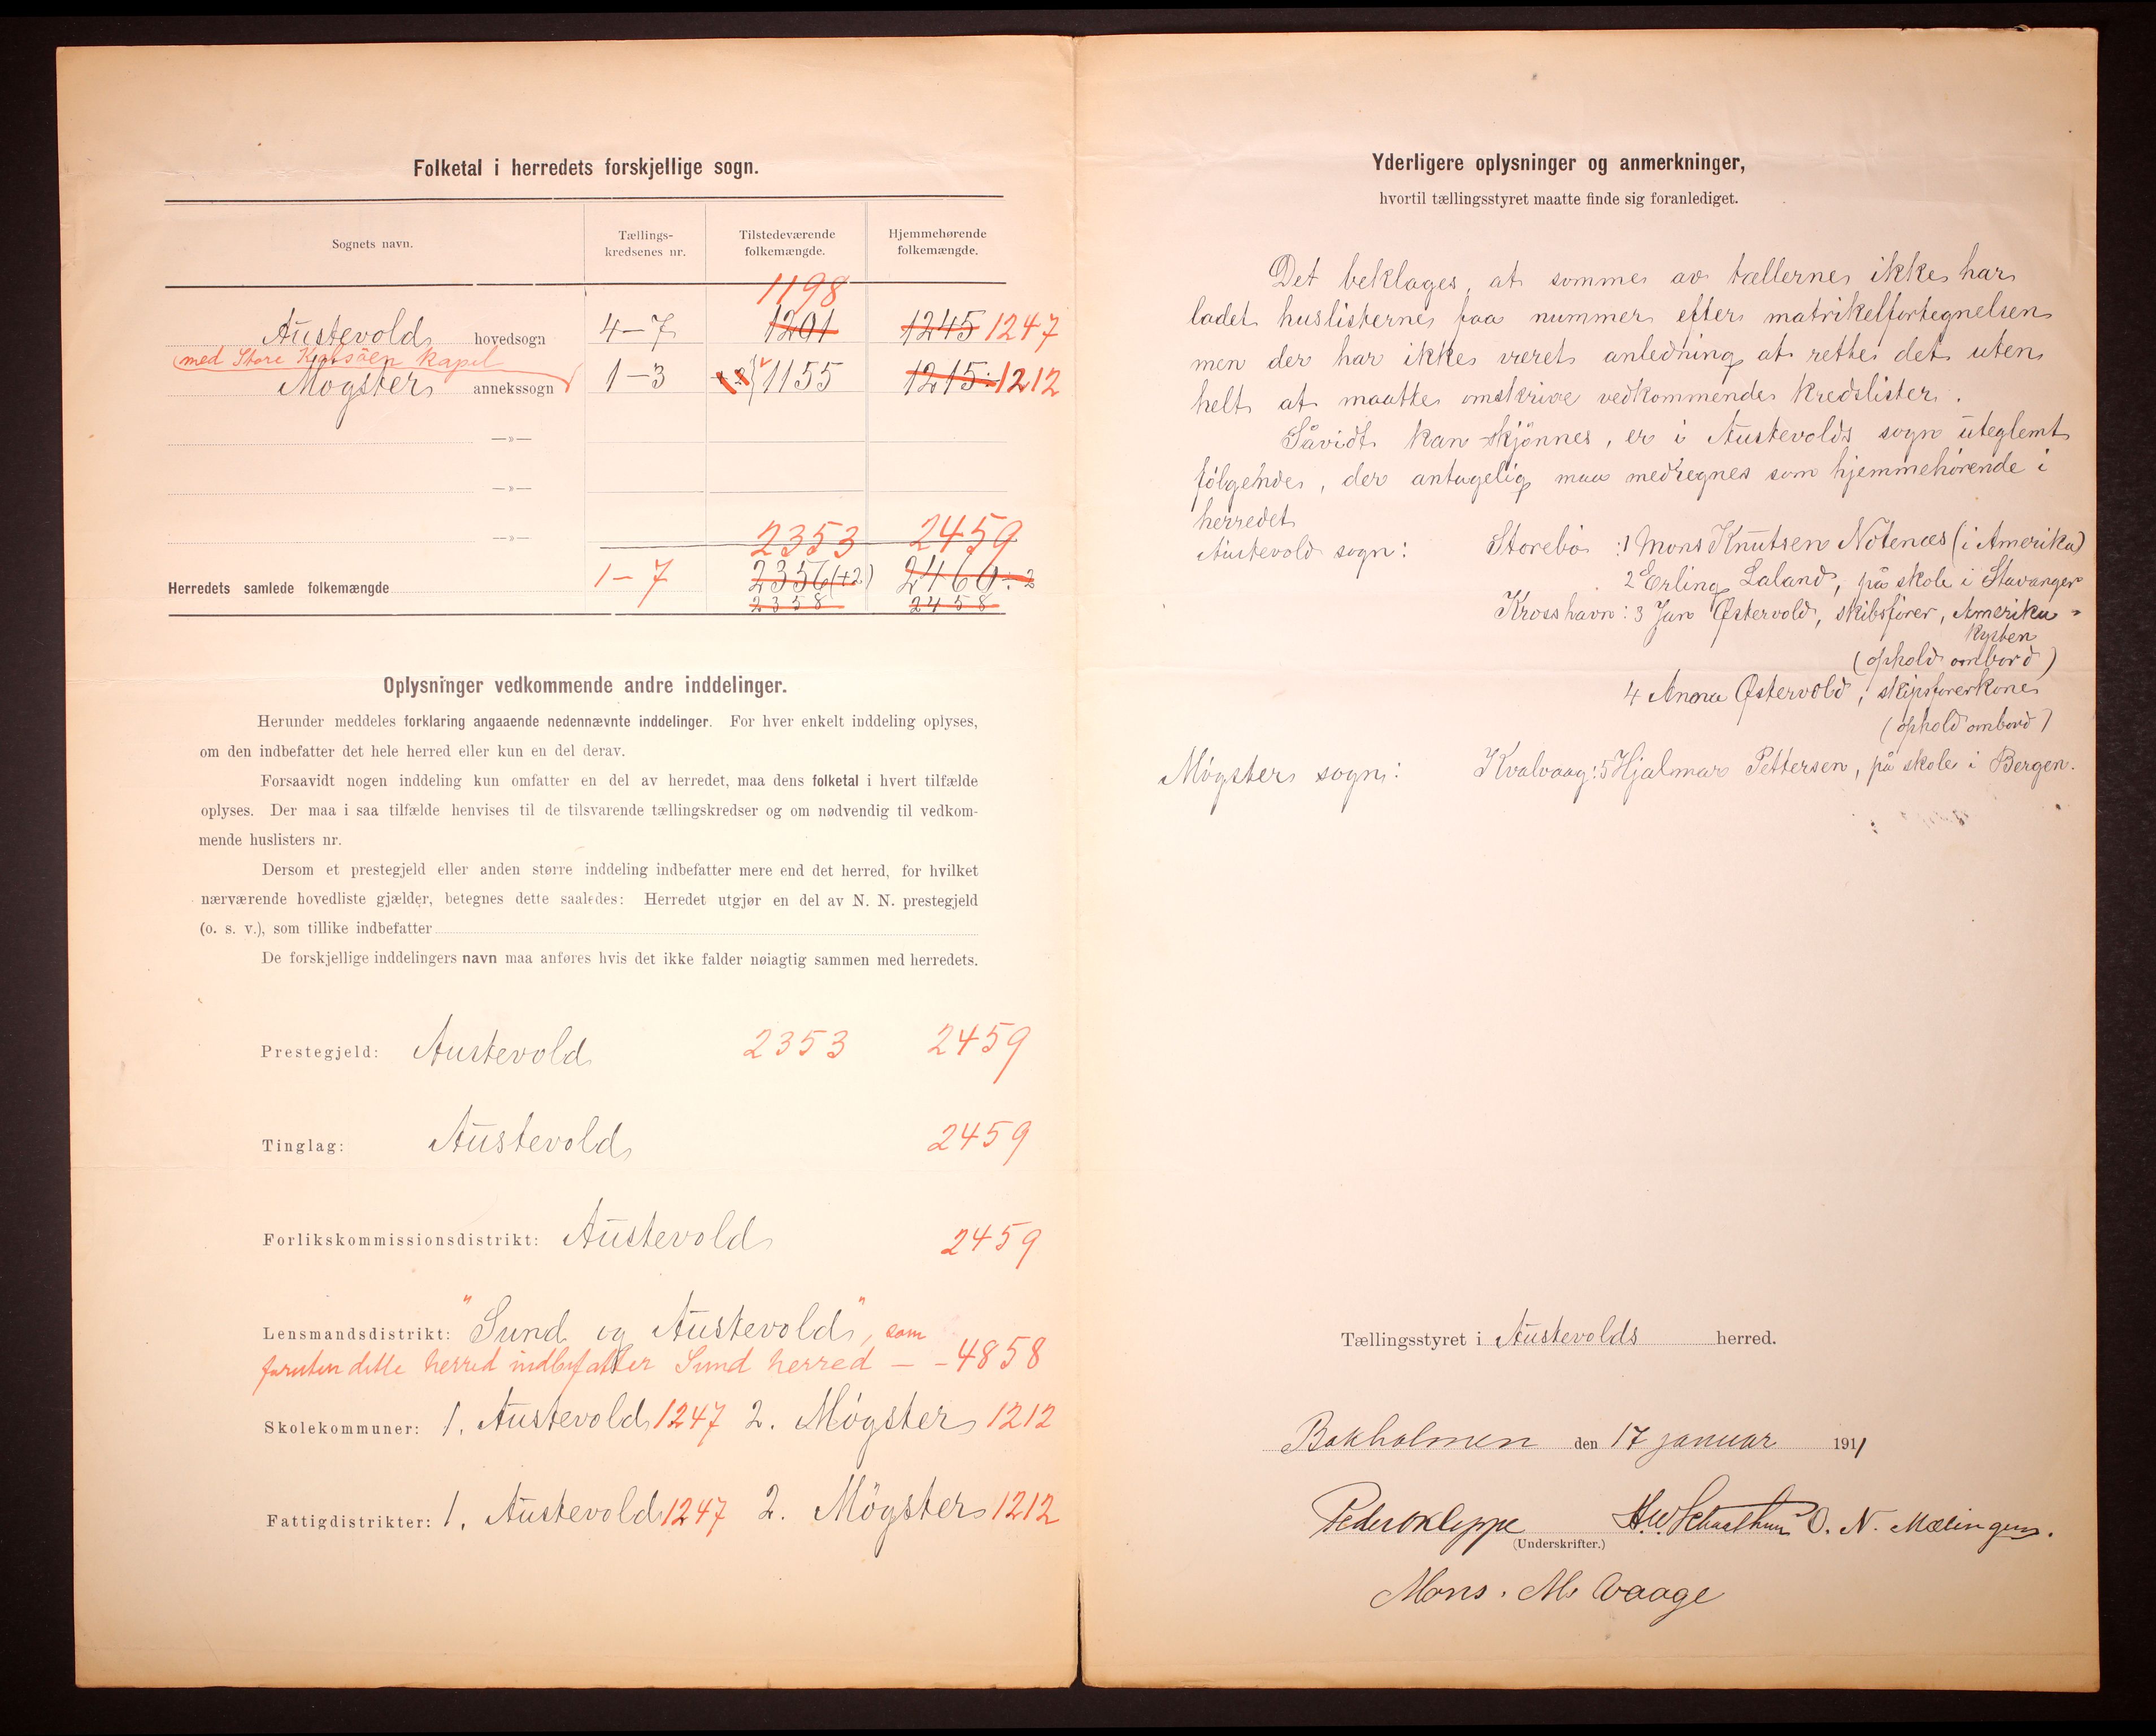 Folketal i herredets forskjellige sogn.
Sognets navn.
Tællings-
kredsenes nr.
Tilstedeværende
folkemængde.
Hjemmehørende
folkemængde.
1198
Austevold hovedsogn 4-7 1201 1245 1247
(med Store Kalsöen kapel
Møgster annekssogn 1-3 1155 1215 1212
—»—
—»—
—»—
2353 2459
Herredets samlede folkemængde 1-7 2356 (+2) 2460 ÷ 2
2358 2458
Oplysninger vedkommende andre inddelinger.
Herunder meddeles forklaring angaaende nedennævnte inddelinger. For hver enkelt inddeling oplyses,
om den indbefatter det hele herred eller kun en del derav.
Forsaavidt nogen inddeling kun omfatter en del av herredet, maa dens folketal i hvert tilfælde
oplyses. Der maa i saa tilfælde henvises til de tilsvarende tællingskredser og om nødvendig til vedkom-
mende huslisters nr.
Dersom et prestegjeld eller anden større inddeling indbefatter mere end det herred, for hvilket
nærværende hovedliste gjælder, betegnes dette saaledes: Herredet utgjør en del av N. N. prestegjeld
(o. s. v.), som tillike indbefatter
De forskjellige inddelingers navn maa anføres hvis det ikke falder nøiagtig sammen med herredets.
Prestegjeld: Austevold 2353 2459
Tinglag: Austevold 2459
Forlikskommissionsdistrikt: Austevold 2459
Lensmandsdistrikt: "Sund og Austevold", som
foruten dette herred indbefatter Sund herred — - 4858
Skolekommuner: 1. Austevold 1247 2. Møgster 1212
Fattigdistrikter: 1. Austevold 1247 2. Møgster 1212
Yderligere oplysninger og anmerkninger,
hvortil tællingsstyret maatte finde sig foranlediget.
Det beklages, at somme av tællerne ikke har
ladet huslisterne faa nummer efter matrikelfortegnelsen
men der har ikke været anledning at rette det uten
helt at maatte omskrive vedkommende kredslister.
Såvidt kan skjönnes, er i Austevolds sogn uteglemt
følgende, der antagelig maa medregnes som hjemmehørende i
herredet
Austevold sogn: Storebø: 1 Mons Knutsen Nötenæs (i Amerika)
2 Erling Laland, på skole i Stavanger
Krosshavn: 3 Jan Østervold, skibsfører, Amerika-
kysten
(ophold ombord)
4 Anna Østervold, skipsførerkone
(ophold ombord)
Møgster sogn: Kvalvaag: 5 Hjalmar Pettersen, på skole i Bergen.
Tællingsstyret i Austevolds herred.
Bakholmen den 17 januar 1911
Peder Kleppe H.W. Schaathun O. N. Mælingen.
(Underskrifter.)
Mons. M. Vaage